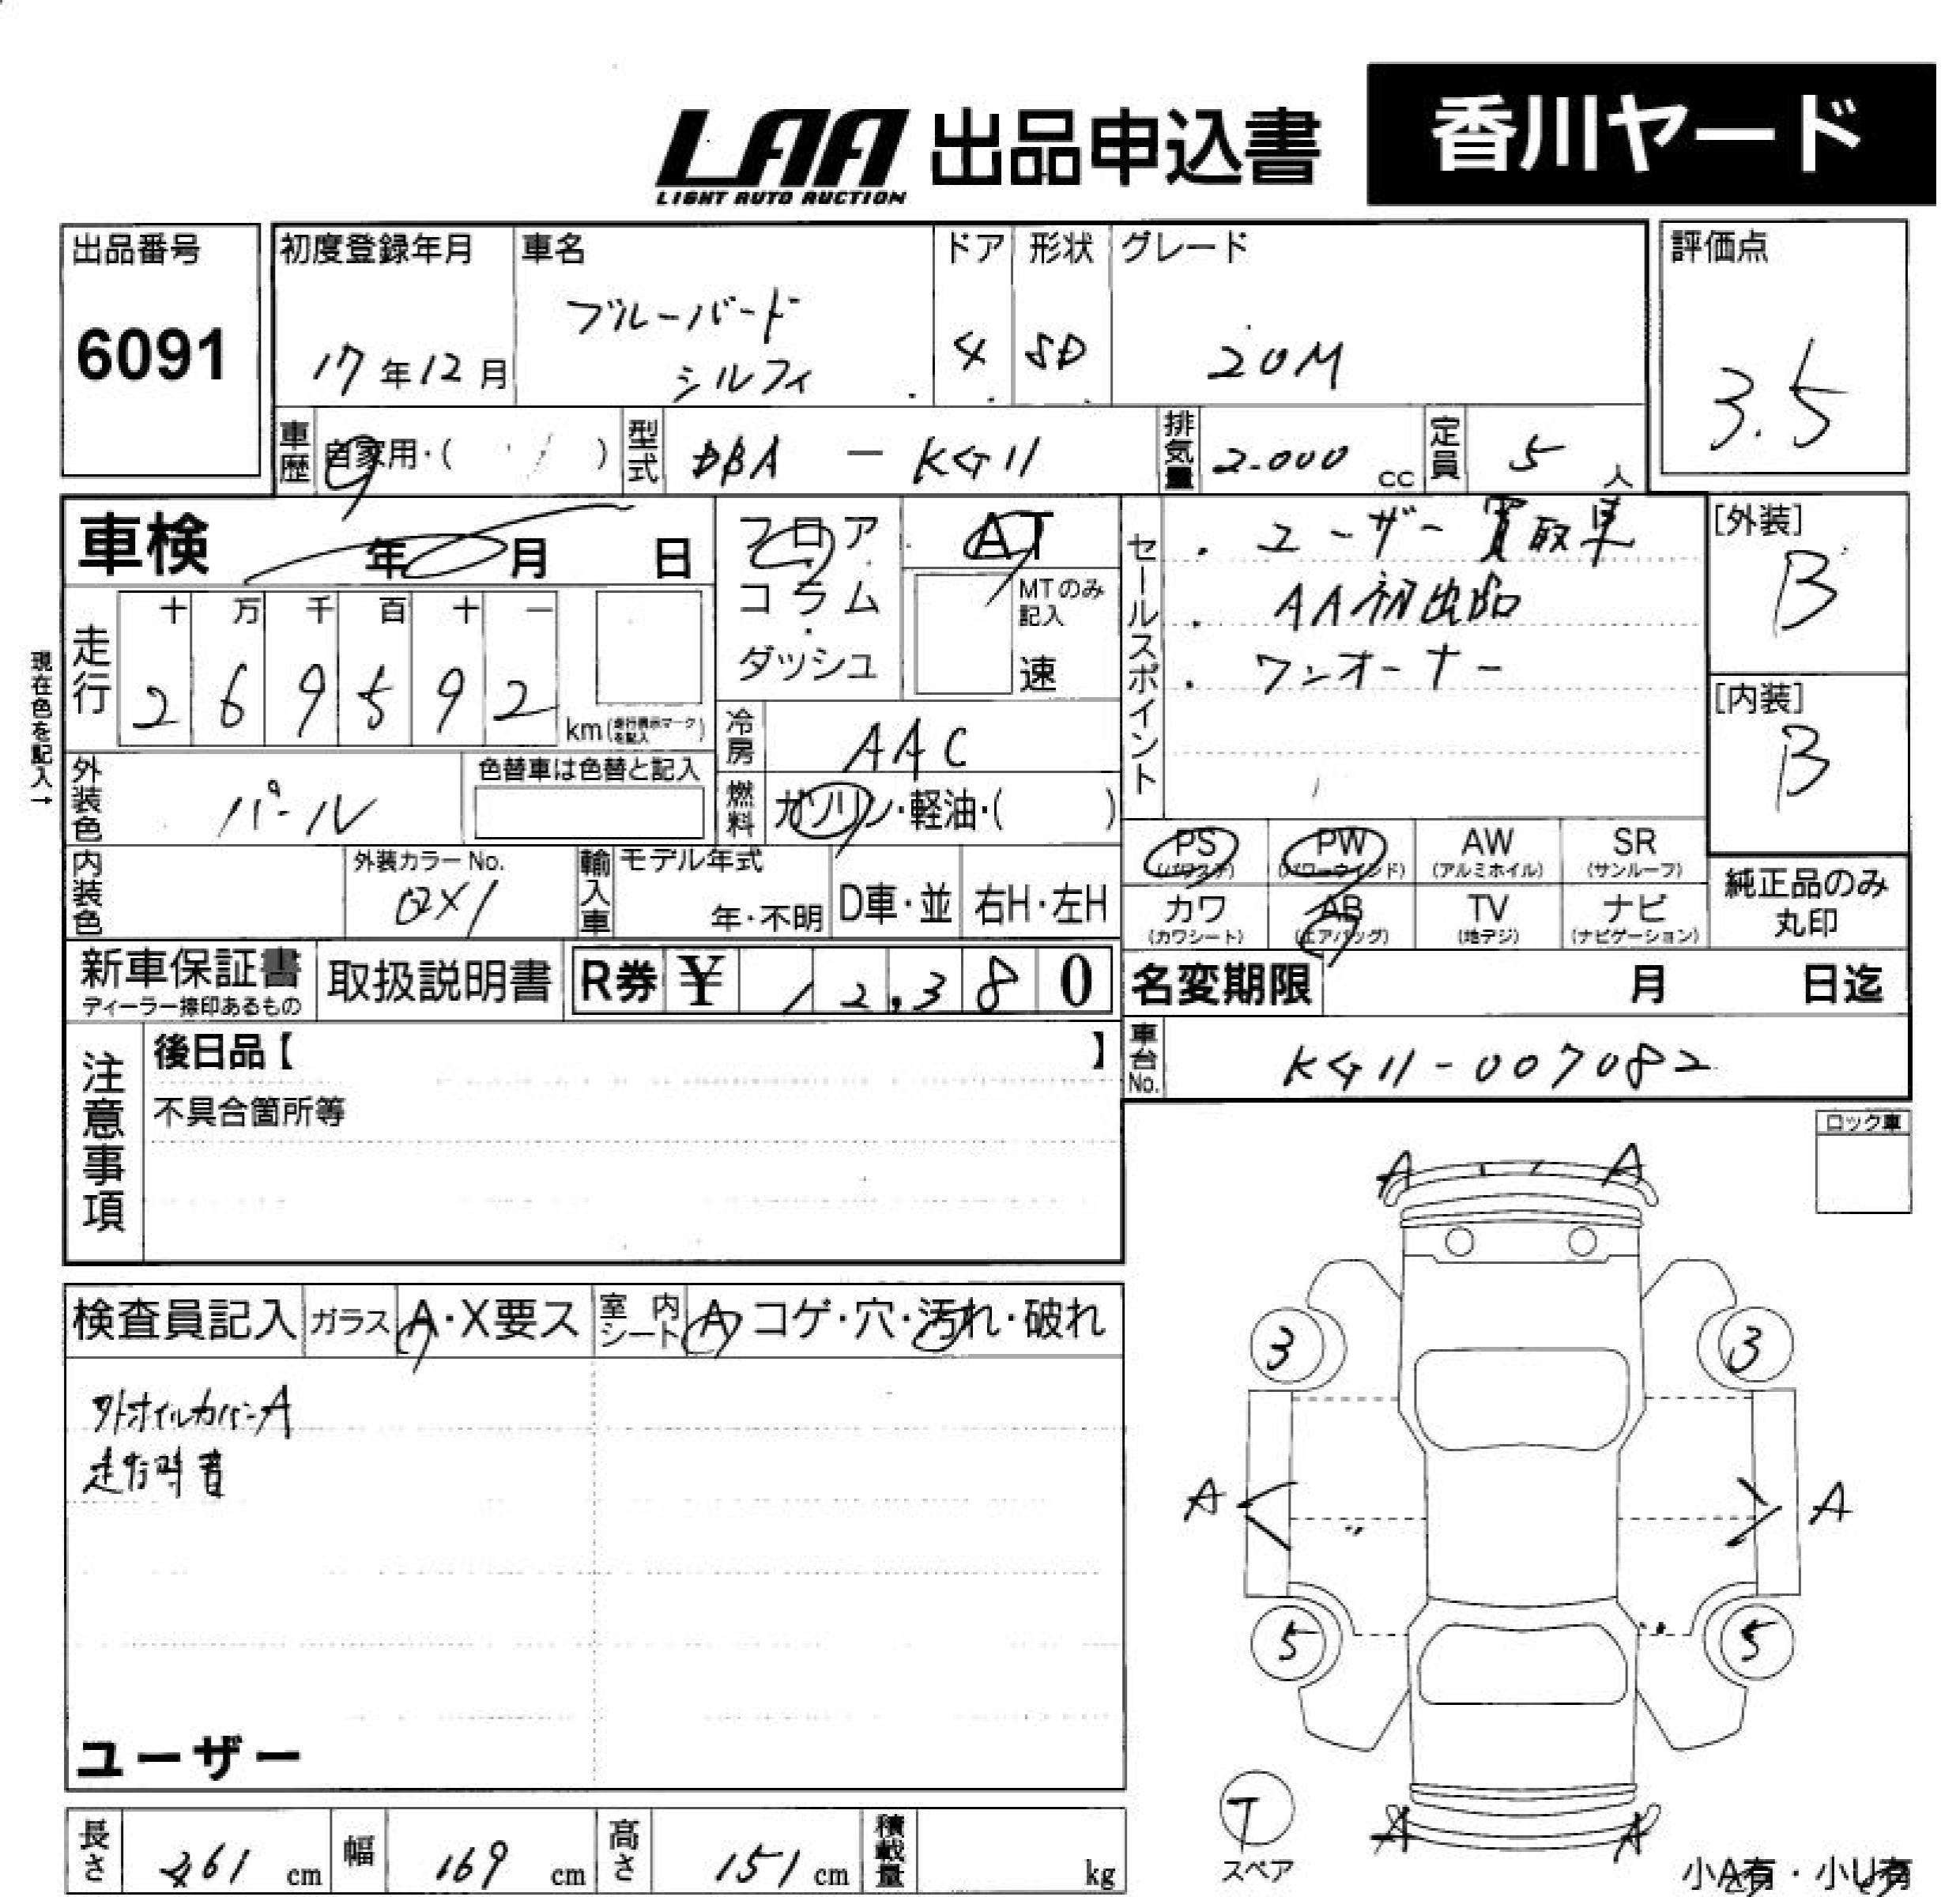 LAA 出品申込書 香川ヤード
LIGHT AUTO AUCTION
出品番号 初度登録年月 車名 ドア 形状 グレード 評価点
6091 17年12月 ブルーバード シルフィ 4 SD 20M 3.5
車歴 自家用・( ) 型式 DBA - KG11 排気量 2.000 cc 定員 5 人
車検 年 月 日
フロア・コラム・ダッシュ
AT
MTのみ記入
速
セールスポイント
・ユーザー買取車
・AA初出品
・ワンオーナー
[外装]
B
[内装]
B
現在色を記入→
走行 十 万 千 百 十 一
2 6 9 5 9 2 km(走行表示マークを記入)
冷房 AAC
外装色 パール 色替車は色替と記入
燃料 ガソリン・軽油・( )
PS (パワステ) PW (パワーウインド) AW (アルミホイル) SR (サンルーフ)
カワ (カワシート) AB (エアバッグ) TV (地デジ) ナビ (ナビゲーション)
純正品のみ
丸印
内装色 外装カラーNo. QX1 輸入車 モデル年式 年・不明 D車・並 右H・左H
新車保証書 ディーラー捺印あるもの 取扱説明書 R券 ¥ 12,380
名変期限 月 日迄
車台No. KG11-007082
注意事項
後日品【 】
不具合箇所等
ロック車
検査員記入 ガラス A・X要ス 室内シート A コゲ・穴・汚れ・破れ
走行時音
ユーザー
A A
3 3
A A
5 5
T
スペア
A A
小A有・小U有
長さ 461 cm 幅 169 cm 高さ 151 cm 積載量 kg